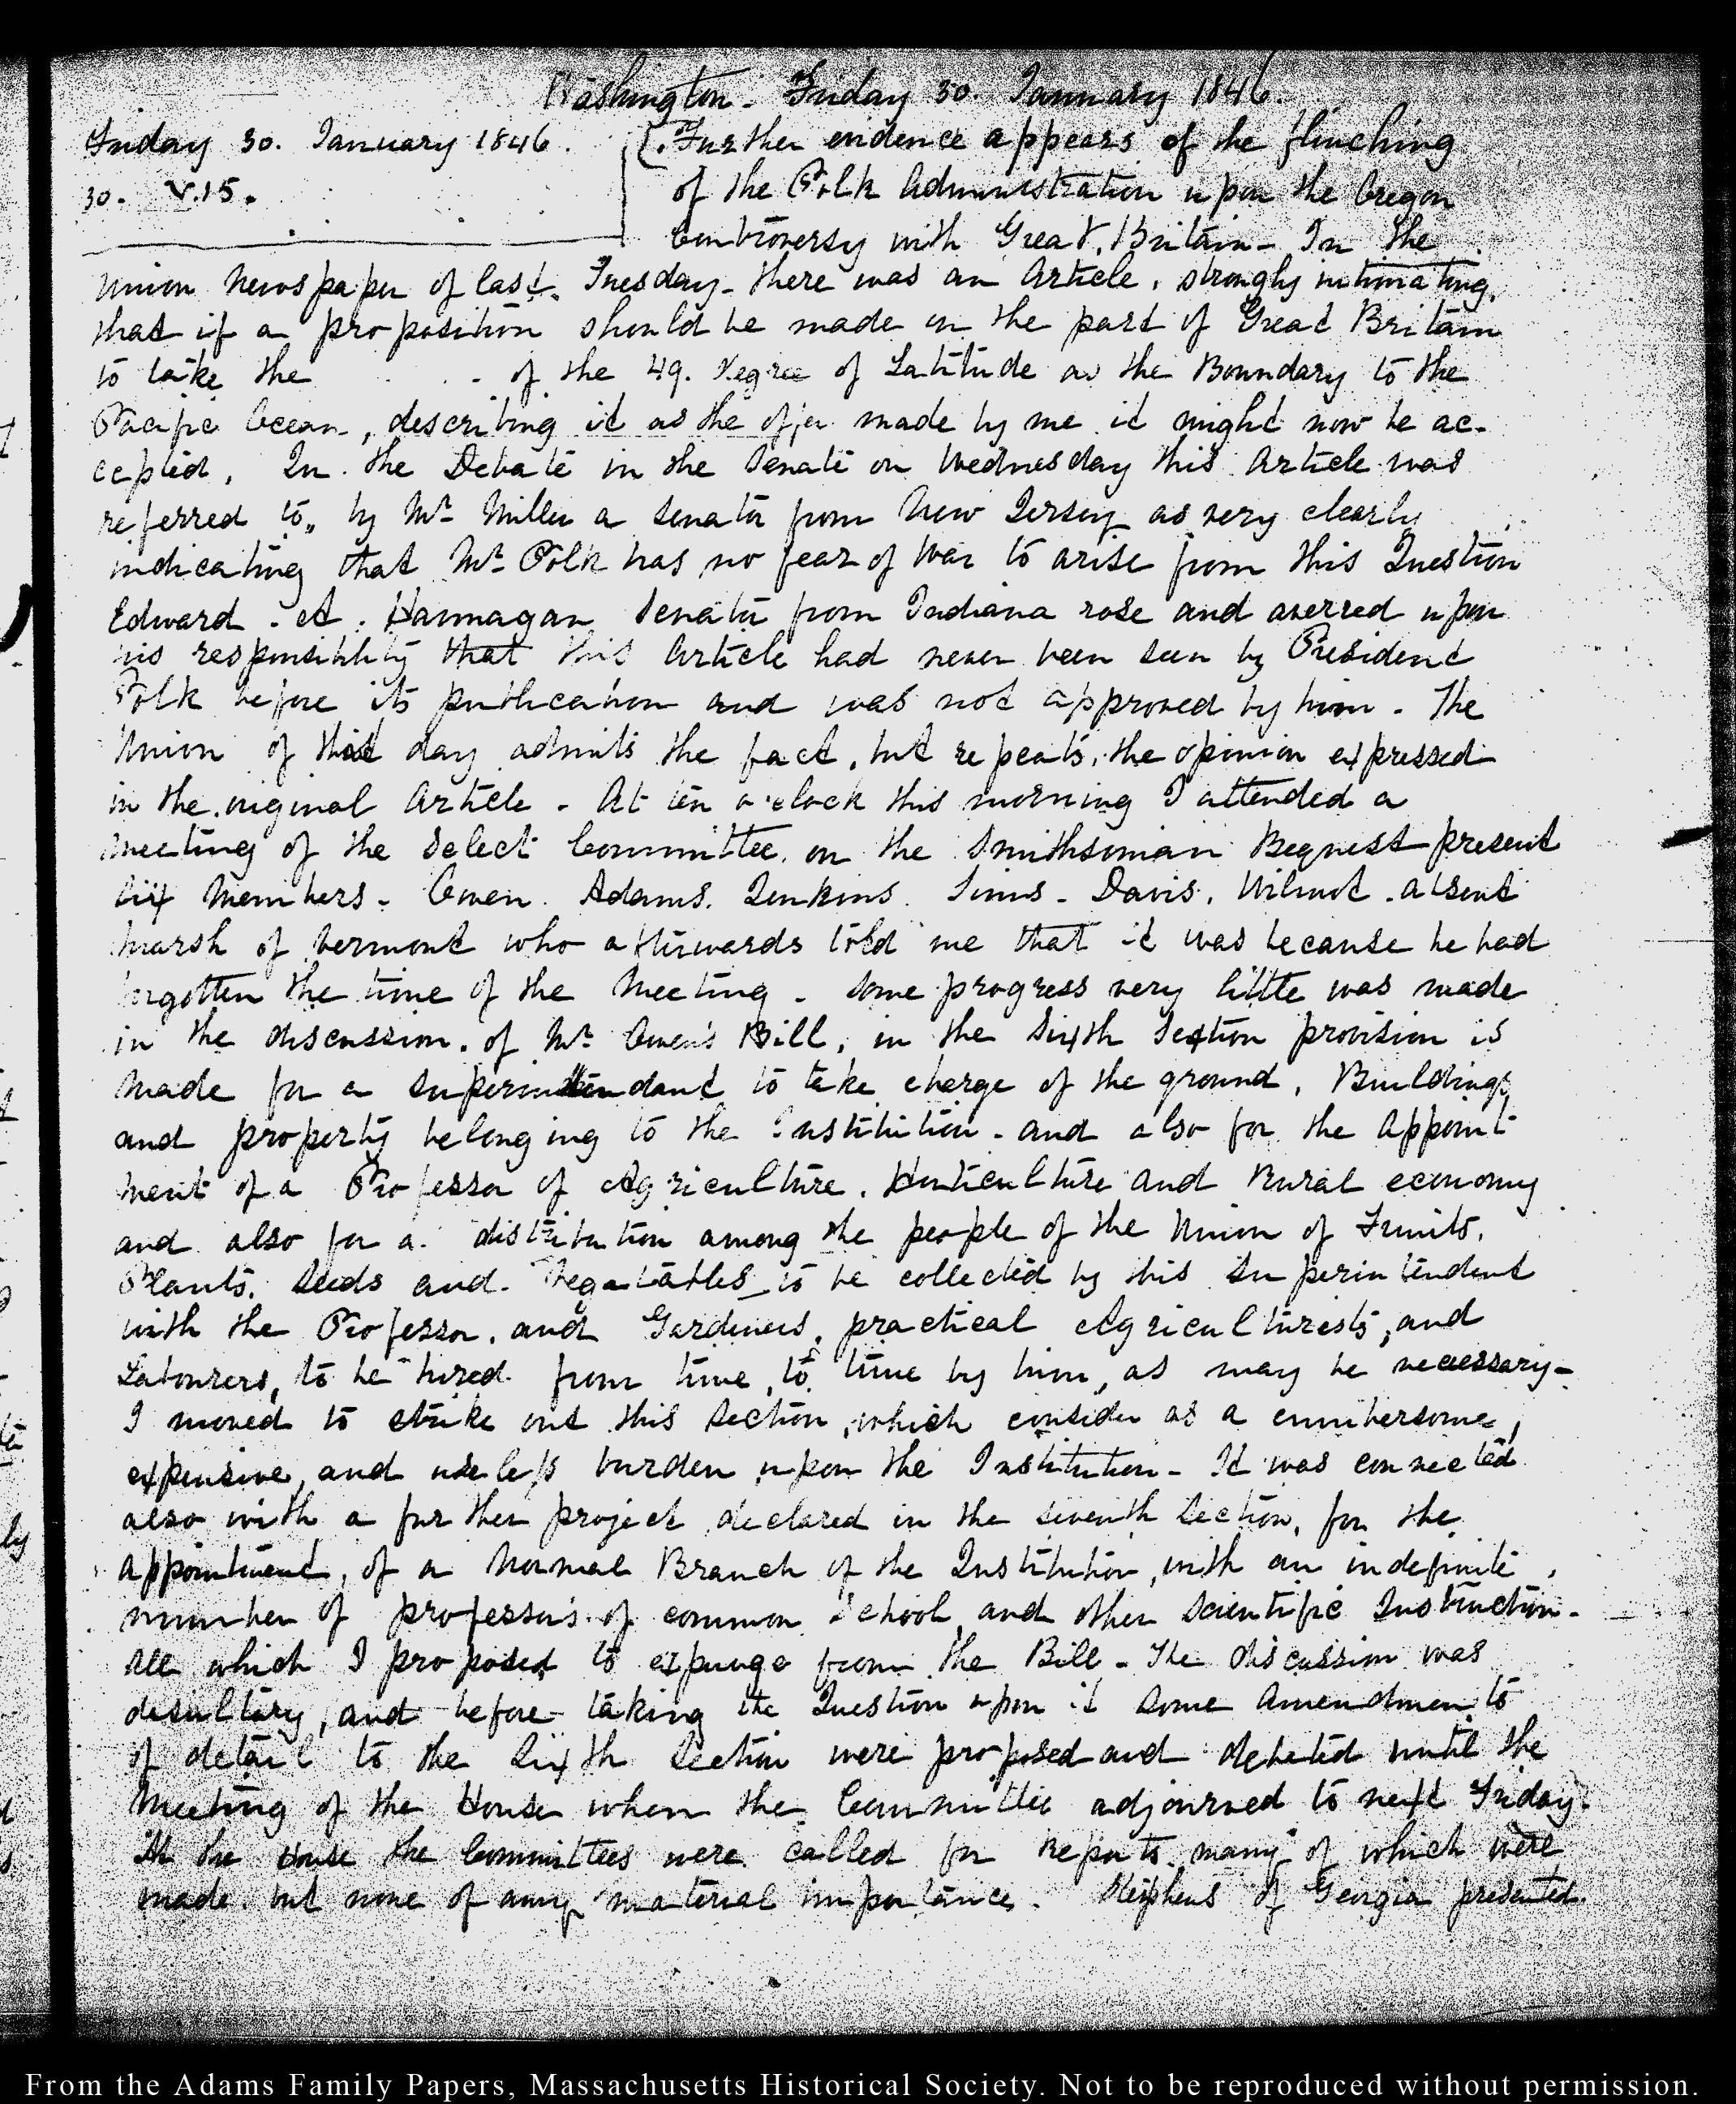 Washington. Friday 30. January 1846.
Friday 30. January 1846.
30. V.15.
Further evidence appears of the flinching
of the Polk Administration upon the Oregon
Controversy with Great Britain– In the
Union Newspaper of last Tuesday– there was an Article, strongly intimating,
that if a proposition should be made on the part of Great Britain
to take the of the 49. degree of Latitude as the Boundary to the
Pacific Ocean–, describing it as the offer made by me it might now be ac-
cepted. In the Debate in the Senate on Wednesday this Article was
referred to, by Mr. Miller a Senator from New Jersey as very clearly
indicating that Mr. Polk has no fear of War to arise from this Question
Edward. A. Hannagan Senator from Indiana rose and averred upon
his responsibility that this Article had never been seen by President
Polk before its publication and was not approved by him – The
Union of this day admits the fact, but repeats, the opinion expressed
in the original Article – At ten o'clock this morning I attended a
meeting of the Select Committee, on the Smithsonian Bequest present
six Members – Owen. Adams. Jenkins. Sims – Davis. Wilmot. absent
Marsh of Vermont who afterwards told me that it was because he had
forgotten the time of the Meeting – Some progress very little was made
in the discussion of Mr. Owen's Bill, in the Sixth Section provision is
made for a Superintendant to take charge of the ground, Buildings
and property belonging to the Institution – and also for the Appoint
ment of a Professor of Agriculture, Horticulture and Rural economy
and also for a distribution among the people of the Union of Fruits,
Plants, Seeds and Vegatables to be collected by this Superintendent
with the Professor, and Gardiners, practical Agriculturists, and
Labourers, to be hired from time, to time by him, as may be necessary–
I moved to strike out this Section, which consider as a cumbersome,
expensive, and useless burden upon the Institution – It was connected
also with a further project declared in the seventh Section, for the
appointment, of a Normal Branch of the Institution, with an indefinite
number of professors of common School and other Scientific Instruction–
all which I proposed to expunge from the Bill – The discussion was
desultory, and before taking the Question upon it some Amendments
of detail to the Sixth Section were proposed and debated until the
Meeting of the House when the Committee adjourned to next Friday.
At the House the Committees were called for Reports many of which were
made but none of any material importance. Stephens of Georgia presented
From the Adams Family Papers, Massachusetts Historical Society. Not to be reproduced without permission.